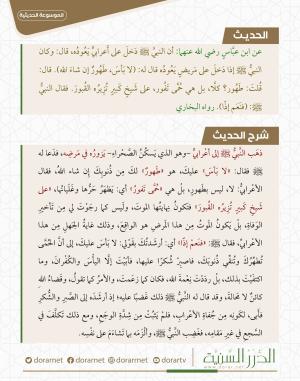 الموسوعة الحديثية
الحديث
عن ابن عبَّاسٍ رضي الله عنهما: أن النبيَّ ﷺ دَخَلَ على أعرابيٍّ يَعُودُه، قال: وكان
النبيُّ ﷺ إذا دَخَلَ على مَريضٍ يَعُودُه قال له: (لا بَأسَ، طَهُورٌ إن شاءَ اللهُ). قال:
قُلْتَ: طَهُورٌ؟ كلَّا، بل هي حُمَّى تَفُور، على شَيخٍ كَبيرٍ تُزِيرُه القُبورَ. فقال النبيُّ
ﷺ: (فنَعَم إذًا). رواه البخاري
شرح الحديث
ذهَب النَّبيُّ ﷺ إلى أعرابيٍّ -وهو الذي يَسكُنُ الصَّحراءَ- يَزورُه في مَرضِه، فدَعا له
فقال: «لا بَأسَ» عليك، هو «طَهورٌ» لك مِن ذُنوبِك إن شاءَ اللهُ، فقال
الأعرابيُّ: لا، ليس بطَهورٍ، بل هي «حُمَّى تَفورُ» أي: يَظهَرُ حَرُّها وغَلَيانُها، «على
شَيخٍ كَبيرٍ تُزِيرُه القُبورَ»، فتَكونُ نِهايتُها الموتَ، وليس كما رجَوْتَ لي مِن تأخيرِ
الوَفاةِ، بل يكونُ الموتُ مِن هذا المرَضِ هو الواقعَ، وذلك غايةُ الجَهلِ مِن هذا
الأعرابيِّ، فقال ﷺ: «فنَعَمْ إذًا» أي: أرشَدتُك بقَولي: لا بأسَ عليك، إلى أنَّ الحُمَّى
تُطهِّرُك وتُنقِّي ذُنوبَك، فاصبِرْ واشكُرْ عليها، فأبَيْتَ إلَّا اليأسَ والكُفرانَ، وما
اكتفَيْتَ بذلك، بل ردَدْتَ نِعمةَ اللهِ، فكان كما زعَمتَ، والأمرُ كما تقولُ، وقَضاءُ اللهِ
كائنٌ لا مَحالةَ، وقد قال له النبيُّ ﷺ ذلك غضَبًا عليه؛ إذ أرشَدَه إلى الصَّبرِ والشُّكرِ
فأبى، لكونِه مِن جُفاةِ الأعرابِ، فلم يَثبُتْ مِن شِدَّةِ الوجَعِ، ومع ذلك تَكلَّفَ في
السَّجعِ في غيرِ مَقامِه، فغضِب النبيُّ ﷺ، وألزَمَه بما تَشاءَمَ على نفْسِه.
الدرر السنية
www.dorar.net
dorarnet dorarnet dorarnet dorartv